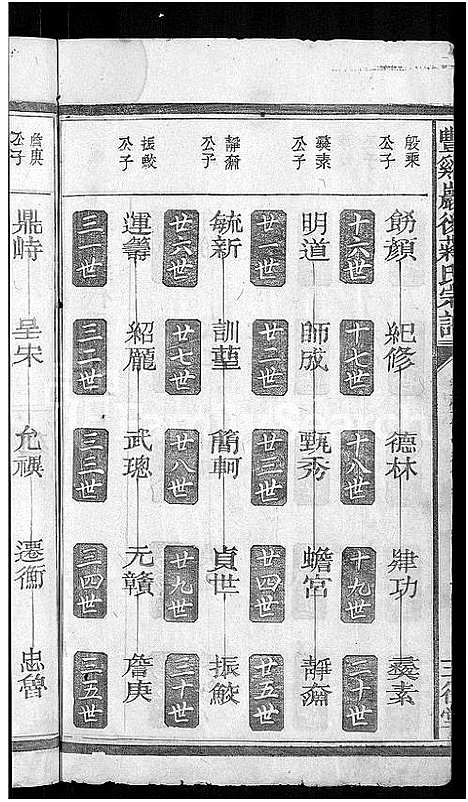 豐谿嚴後蔣氏宗譜
三徑堂
殷乘公子
十六世 飭顏
十七世 紀修
十八世 德林
十九世 肂功
二十世 㬪素
㬪素公子
廿一世 明道
廿二世 師成
廿三世 甄秀
廿四世 蟾宮
廿五世 靜齋
靜齋公子
廿六世 毓新
廿七世 訓堇
廿八世 簡軻
廿九世 貞世
三十世 振鮫
振鮫公子
三一世 運籌
三二世 紹龐
三三世 武璁
三四世 元贛
三五世 詹庚
詹庚公子
鼎峙
呈朱
允禩
遷衡
忠魯